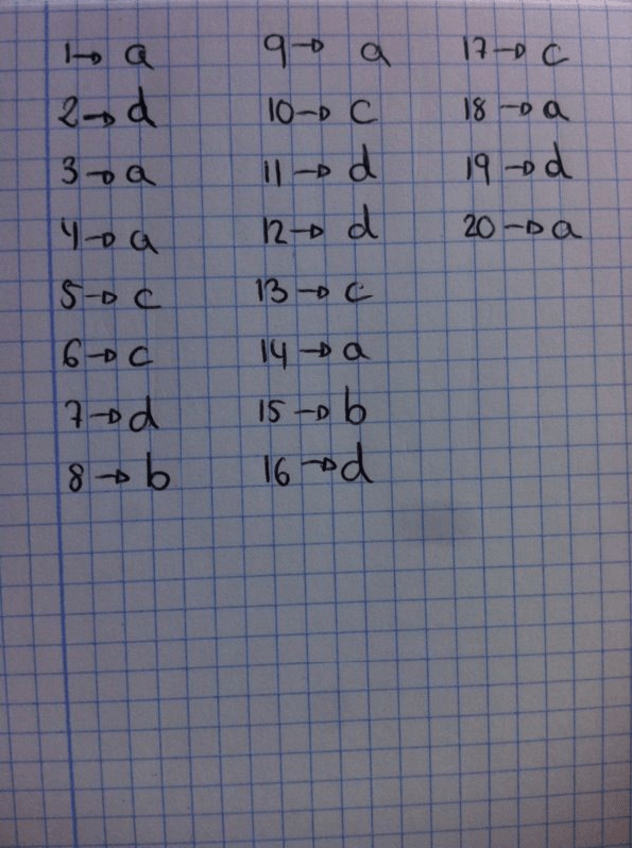 1→ a
2→ d
3→ a
4→ a
5→ c
6→ c
7→ d
8→ b
9→ a
10→ c
11→ d
12→ d
13→ c
14→ a
15→ b
16→ d
17→ c
18→ a
19→ d
20→ a